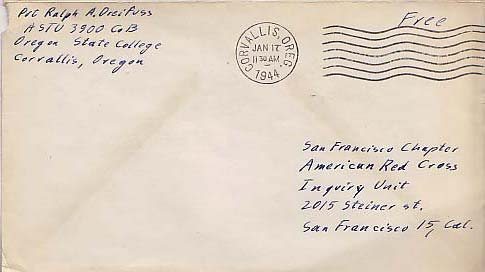 Pvt Ralph A. Dreifuss
ASTU 3900 Co B
Oregon State College
Corvallis, Oregon
CORVALLIS, OREG.
JAN 17
11 30 AM
1944
Free
San Francisco Chapter
American Red Cross
Inquiry Unit
2015 Steiner st.
San Francisco 15, Cal.